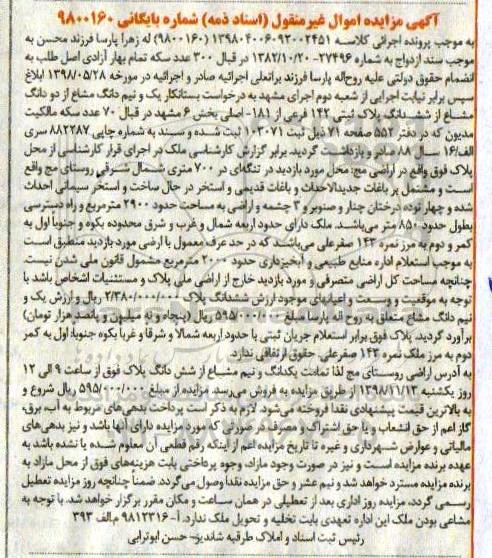 آگهی مزایده اموال غیرمنقول (اسناد ذمه) شماره بایگانی ۹۸۰۰۱۶۰
به موجب پرونده اجرائی کلاسه ۱۳۹۸۰۴۰۰۶۰۹۳۰۰۲۴۵۱ (۹۸۰۰۱۶۰) له زهرا پارسا فرزند محسن به
موجب سند ازدواج به شماره ۲۷۴۹۶-۱۳۸۲/۱۰/۲۰ در قبال ۳۰۰ عدد سکه تمام بهار آزادی اصل طلب به
انضمام حقوق دولتی علیه روح‌اله پارسا فرزند براتعلی اجرائیه صادر و اجرائیه در مورخه ۱۳۹۸/۰۵/۲۸ ابلاغ
سپس برابر نیابت اجرایی از شعبه دوم اجرای مشهد به درخواست بستانکار یک و نیم دانگ مشاع از دو دانگ
مشاع از ششدانگ پلاک ثبتی ۱۴۲ فرعی از ۱۸۱- اصلی بخش ۶ مشهد در قبال ۷۰ عدد سکه مالکیت
مدیون که در دفتر ۵۵۲ صفحه ۷۱ ذیل ثبت ۱۰۳۰۷۱ ثبت شده و سسند به شماره چاپی ۸۸۲۲۸۷ سری
الف/۱۶ سال ۸۸ صادر و بازداشت گردید. برابر گزارش کارشناسی ملک در اجرای قرار کارشناسی از محل
پلاک فوق واقع در اراضی مج: محل مورد بازدید در تنگه‌ای در ۷۰۰ متری شمال شرقی روستای مج واقع
است و مشتمل بر باغات جدیدالاحداث و باغات قدیمی و استخر در حال ساخت و استخر سیمانی احداث
شده و چهار توده درختان چنار و صنوبر و ۳ چشمه و اراضی به مساحت حدود ۲۹۰۰ مترمربع و راه دسترسی
بطول حدود ۸۵۰ متر می‌باشند. ملک دارای حدود اربعه شمال و غرب و شرق محدوده بکوه و جنوباً اول به
کمر و دوم به مرز نمره ۱۴۳ صفرعلی می‌باشند که در حد عرف معمول با ارضی مورد بازدید منطبق است
به موجب استعلام اداره منابع طبیعی و آبخیزداری حدود ۲۰۰۰ مترمربع مشمول قانون ملی شدن نیست.
چنانچه مساحت کل اراضی متصرفی و مورد بازدید خارج از اراضی ملی پلاک و مستثنیات اشخاص باشد با
توجه به موقعیت و وسعت و اعیانهای موجود ارزش ششدانگ پلاک ۲/۳۸۰/۰۰۰/۰۰۰ ریال و ارزش یک و
نیم دانگ مشاع متعلق به روح اله پارسا مبلغ ۵۹۵/۰۰۰/۰۰۰ ریال (پنجاه و نه میلیون و پانصد هزار تومان)
برآورد گردید. پلاک فوق برابر استعلام جریان ثبتی با حدود اربعه شمالا و شرقا و غربا بکوه جنوبا: اول به کمر
دوم به مرز ملک نمره ۱۴۳ صفرعلی. حقوق ارتفاقی ندارد.
به آدرس اراضی روستای مج لذا تمامت یکدانگ و نیم مشاع از شش دانگ پلاک فوق از ساعت ۹ الی ۱۲
روز یکشنبه ۱۳۹۸/۱۱/۱۳ از طریق مزایده به فروش می‌رسد. مزایده از مبلغ ۵۹۵/۰۰۰/۰۰۰ ریال شروع و
به بالاترین قیمت پیشنهادی نقدا فروخته می‌شود. لازم به ذکر است پرداخت بدهی‌های مربوط به آب، برق،
گاز اعم از حق انشعاب و یا حق اشتراک و مصرف در صورتی که مورد مزایده دارای آنها باشد و نیز بدهی‌های
مالیاتی و عوارض شهرداری و غیره تا تاریخ مزایده اعم از اینکه رقم قطعی آن معلوم شده یا نشده باشد به
عهده برنده مزایده است و نیز در صورت وجود مازاد، وجوه پرداختی بابت هزینه‌های فوق از محل مازاد به
برنده مزایده مسترد خواهد شد و نیم عشر و حق مزایده نقدا وصول می‌گردد. ضمناً چنانچه روز مزایده تعطیل
رسمی گردد، مزایده روز اداری بعد از تعطیلی در همان ساعت و مکان مقرر برگزار خواهد شد. با توجه به
مشاعی بودن ملک این اداره تعهدی بابت تخلیه و تحویل ملک ندارد. آ- ۹۸۱۲۳۱۶ م‌الف ۳۹۳
رئیس ثبت اسناد و املاک طرقبه شاندیز- حسن ابوترابی